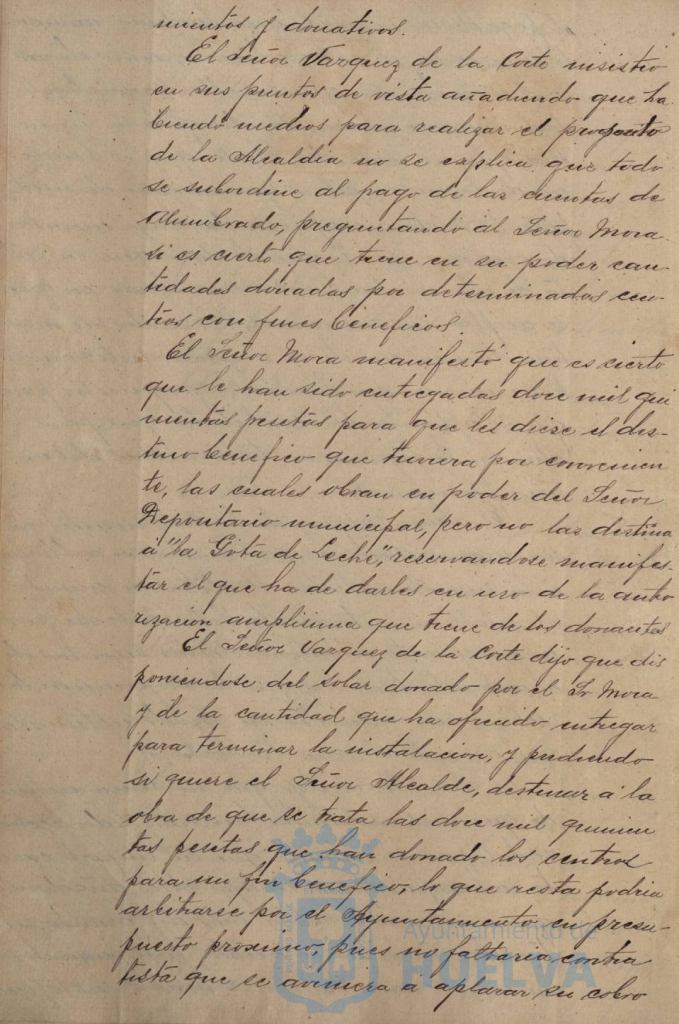 mientos y donativos.
El Señor Vazquez de la Corte insistió
en sus puntos de vista añadiendo que ha
biendo medios para realizar el proposito
de la Alcaldia no se explica que todo
se subordine al pago de las cuentas de
Alumbrado, preguntando al Señor Mora
si es cierto que tiene en su poder can-
tidades donadas por determinados cen-
tros con fines beneficos.
El Señor Mora manifestó que es cierto
que le han sido entregadas doce mil qui
nientas pesetas para que les diese el des-
tino benefico que tuviera por convenien
te, las cuales obran en poder del Señor
Depositario municipal, pero no las destina
á "la Gota de Leche", reservandose manifes-
tar el que ha de darles en uso de la auto
rización amplisima que tiene de los donantes
El Señor Vazquez de la Corte dijo que dis
poniendose del solar donado por el Sr Mora
y de la cantidad que ha ofrecido entregar
para terminar la instalacion, y pudiendo
si quiere el Señor Alcalde, destinar á la
obra de que se trata las doce mil quinien
tas pesetas que han donado los centros
para un fin benefico, lo que resta podria
arbitrarse por el Ayuntamiento en presu-
puesto proximo, pues no faltaria contra
tista que se aviniera a aplazar su cobro
Ayuntamiento de
HUELVA